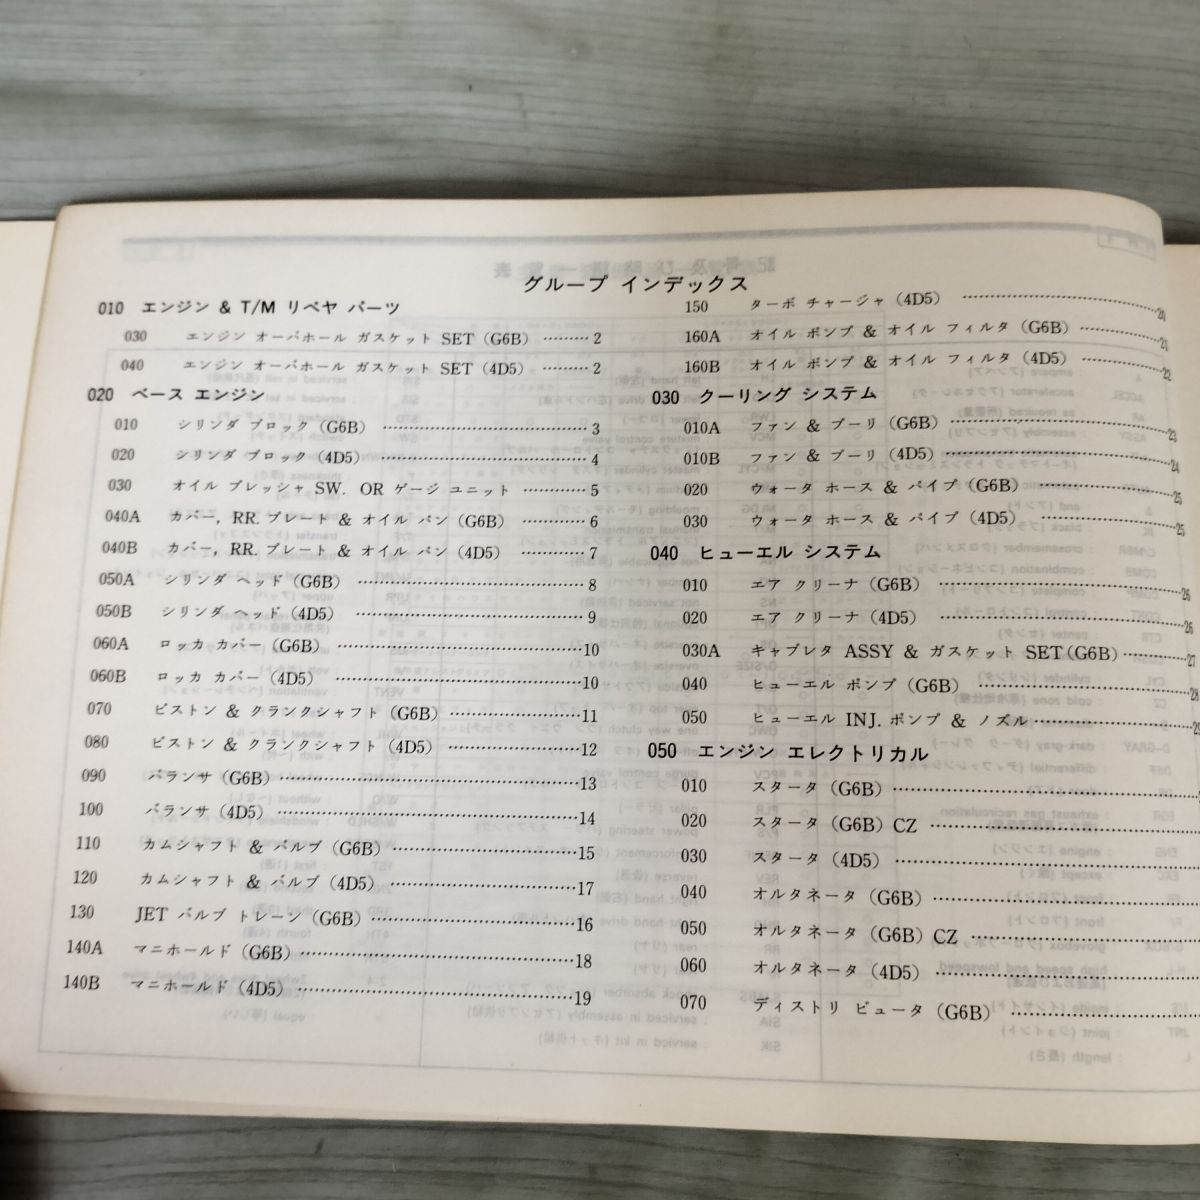 グループ インデックス
010 エンジン & T/M リペヤ パーツ
030 エンジン オーバホール ガスケット SET (G6B) ………2
040 エンジン オーバホール ガスケット SET (4D5) ………2
020 ベース エンジン
010 シリンダ ブロック (G6B) ………3
020 シリンダ ブロック (4D5) ………4
030 オイル プレッシャ SW. OR ゲージ ユニット ………5
040A カバー, RR. プレート & オイル パン (G6B) ………6
040B カバー, RR. プレート & オイル パン (4D5) ………7
050A シリンダ ヘッド (G6B) ………8
050B シリンダ ヘッド (4D5) ………9
060A ロッカ カバー (G6B) ………10
060B ロッカ カバー (4D5) ………10
070 ピストン & クランクシャフト (G6B) ………11
080 ピストン & クランクシャフト (4D5) ………12
090 バランサ (G6B) ………13
100 バランサ (4D5) ………14
110 カムシャフト & バルブ (G6B) ………15
120 カムシャフト & バルブ (4D5) ………17
130 JET バルブ トレーン (G6B) ………16
140A マニホールド (G6B) ………18
140B マニホールド (4D5) ………19
150 ターボ チャージャ (4D5) ………20
160A オイル ポンプ & オイル フィルタ (G6B) ………21
160B オイル ポンプ & オイル フィルタ (4D5) ………22
030 クーリング システム
010A ファン & プーリ (G6B) ………23
010B ファン & プーリ (4D5) ………24
020 ウォータ ホース & パイプ (G6B) ………25
030 ウォータ ホース & パイプ (4D5) ………25
040 ヒューエル システム
010 エア クリーナ (G6B) ………26
020 エア クリーナ (4D5) ………26
030A キャブレタ ASSY & ガスケット SET (G6B) ………27
040 ヒューエル ポンプ (G6B) ………28
050 ヒューエル INJ. ポンプ & ノズル ………29
050 エンジン エレクトリカル
010 スタータ (G6B) ………
020 スタータ (G6B) CZ ………
030 スタータ (4D5) ………
040 オルタネータ (G6B) ………
050 オルタネータ (G6B) CZ ………
060 オルタネータ (4D5) ………
070 ディストリ ビュータ (G6B) ………